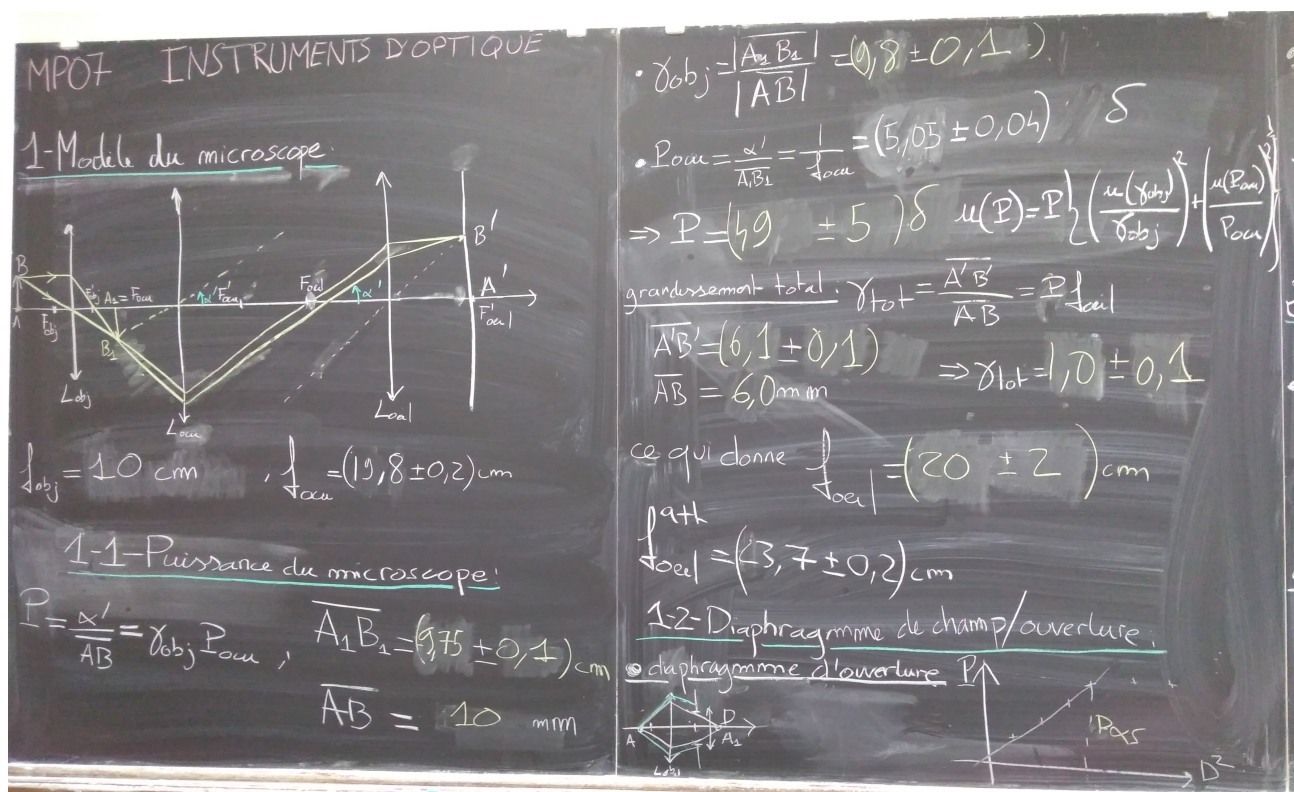 MP07 INSTRUMENTS D'OPTIQUE
1-Modèle du microscope:
B
A
F_obj
F'_obj
A_1 = F_ocu
B_1
α'
F'_ocu
F_oeil
α'
B'
A'
F'_oeil
L_obj
L_ocu
L_oeil
f_obj = 10 cm , f_ocu = (19,8 ± 0,2) cm
1-1-Puissance du microscope:
P = α'/AB = γ_obj P_ocu , A_1B_1 = (9,75 ± 0,1) cm
AB = 10 mm
• γ_obj = |A_1B_1|/|AB| = (9,8 ± 0,1)
• P_ocu = α'/A_1B_1 = 1/f_ocu = (5,05 ± 0,04) δ
⇒ P = (49 ± 5) δ u(P) = P {(u(γ_obj)/γ_obj)² + (u(P_ocu)/P_ocu)²}^½
grandissement total: γ_tot = A'B'/AB = P f_oeil
A'B' = (6,1 ± 0,1)
AB = 6,0 mm ⇒ γ_tot = 1,0 ± 0,1
ce qui donne f_oeil = (20 ± 2) cm
= (13,7 ± 0,2) cm
1-2-Diaphragmme de champ/ouverture:
• diaphragmme d'ouverture
A
D
A_1
L_obj
P
P∝S
D²